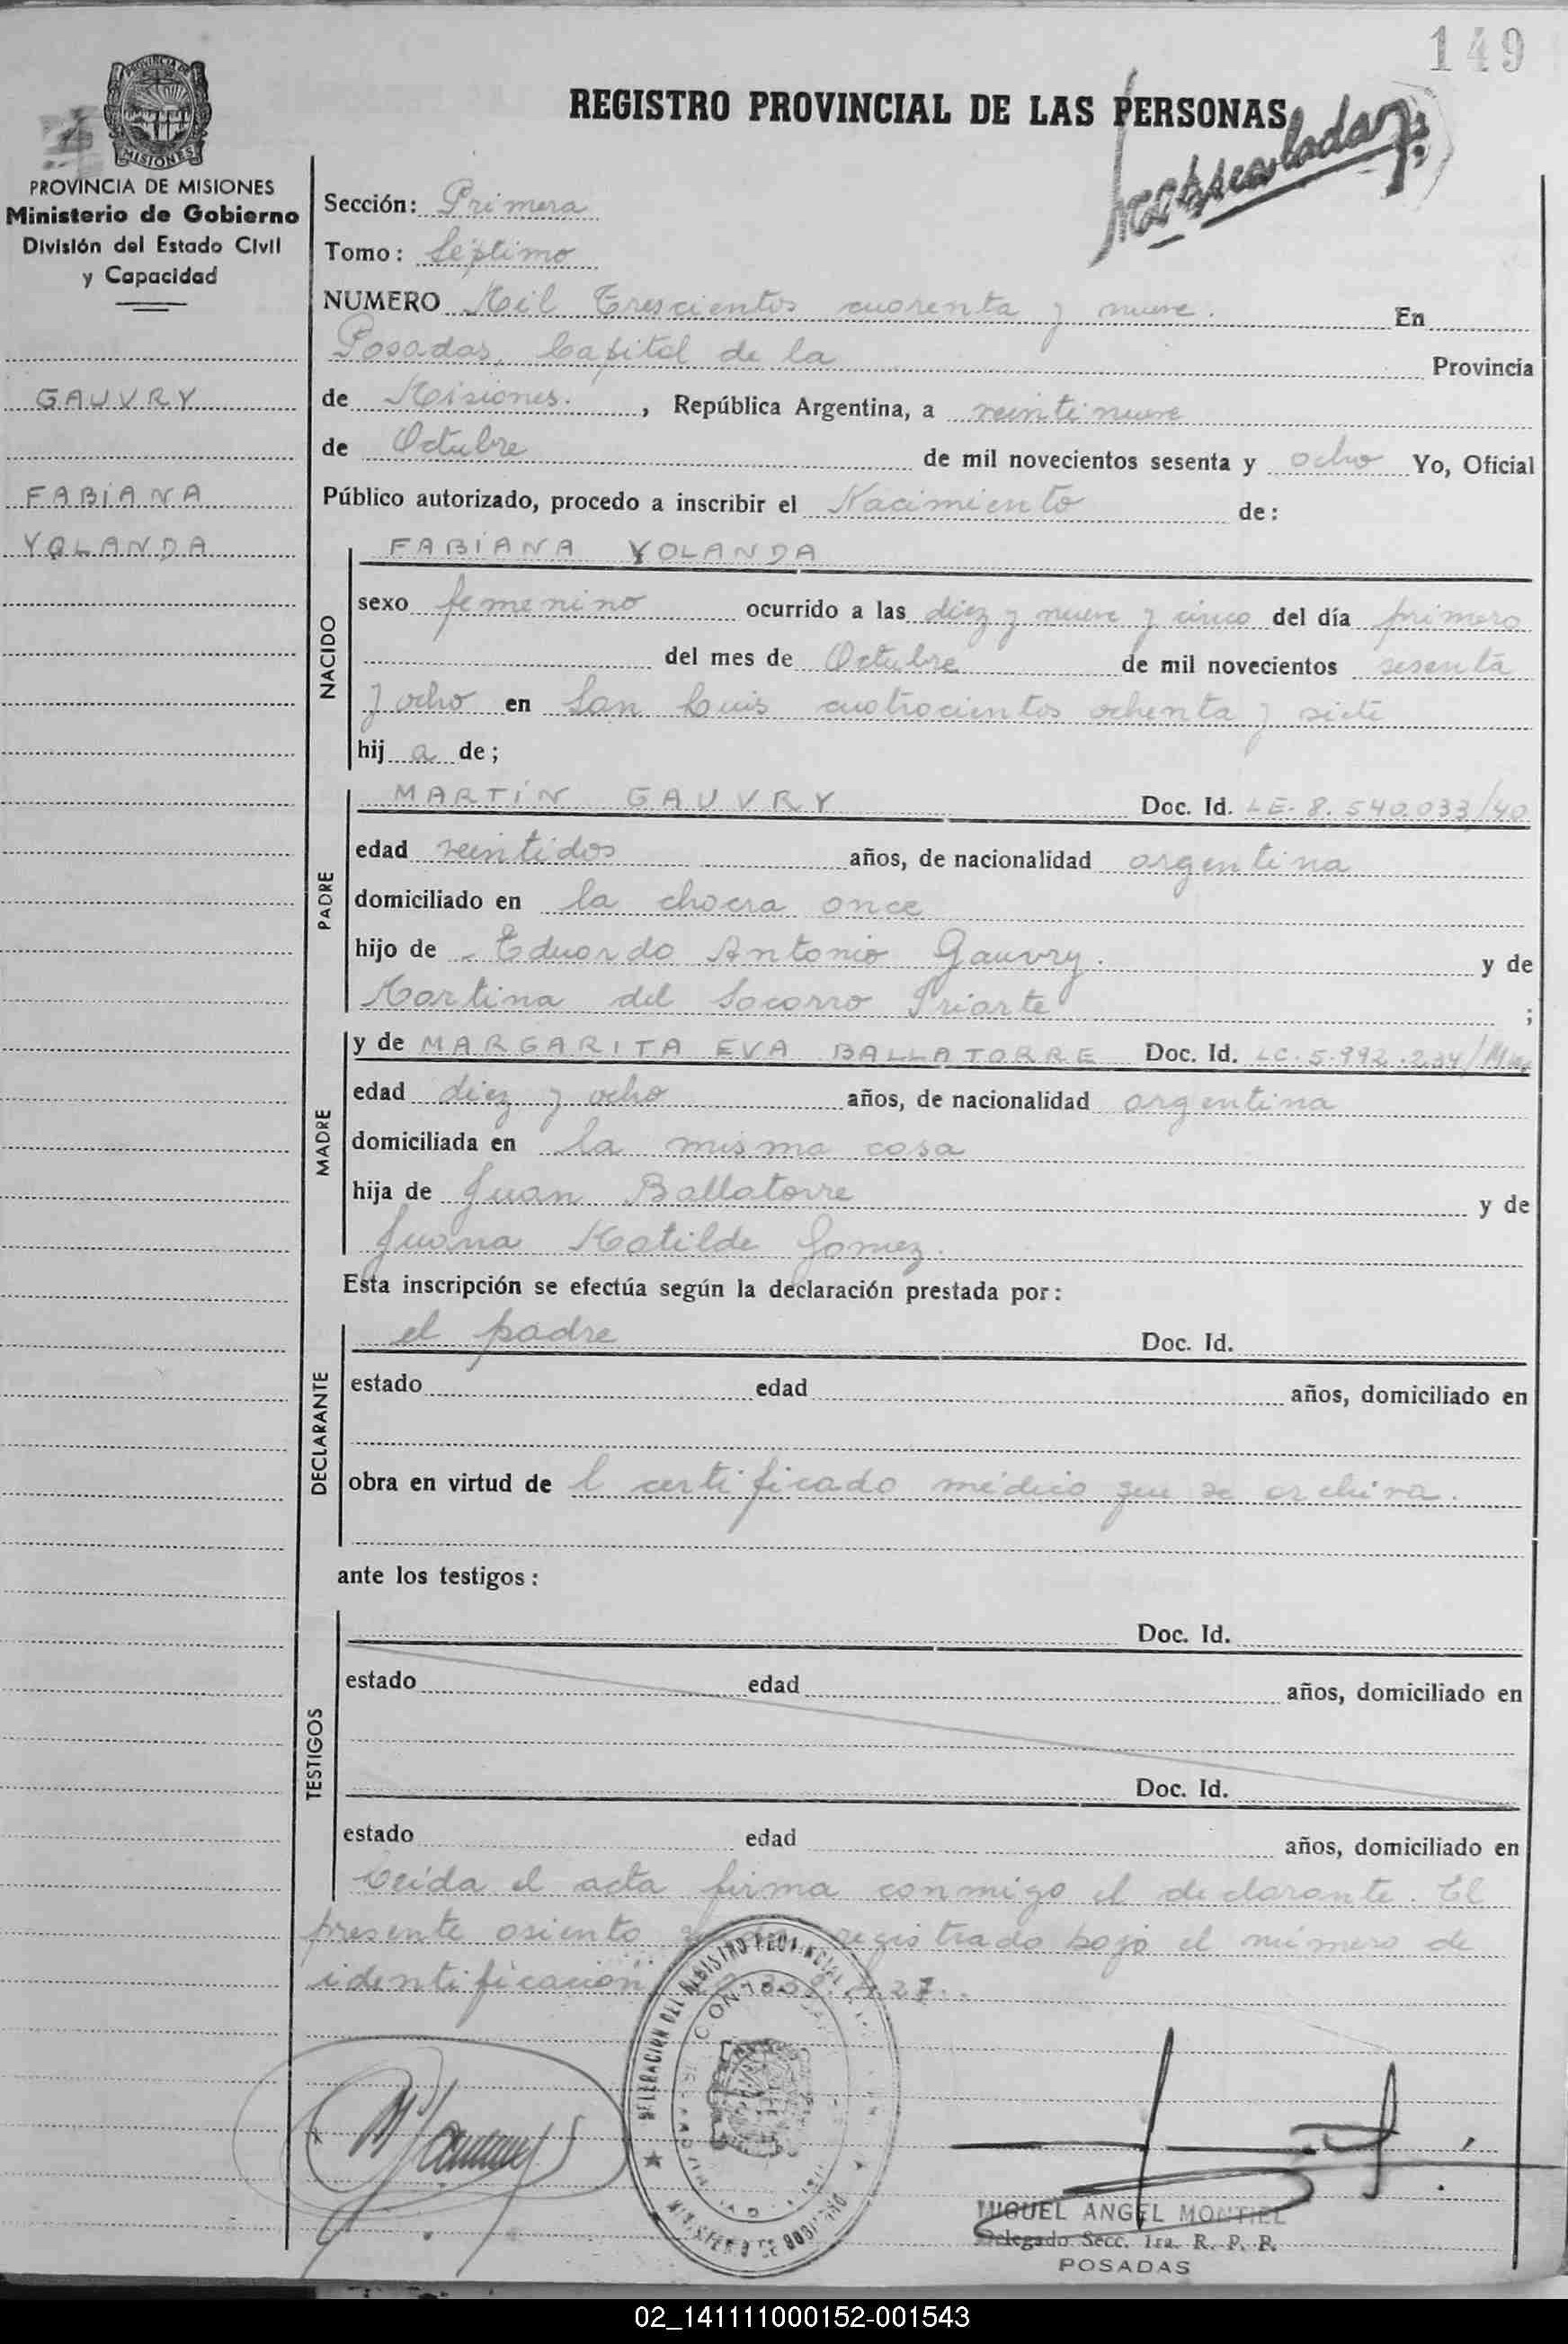 149
REGISTRO PROVINCIAL DE LAS PERSONAS
PROVINCIA DE MISIONES
Ministerio de Gobierno
División del Estado Civil
y Capacidad
GAUVRY
FABIANA
YOLANDA
Sección: Primera
Tomo: Séptimo
NUMERO Mil Trescientos cuarenta y nueve. En
Posadas, Capital de la Provincia
de Misiones. , República Argentina, a veintinueve
de Octubre de mil novecientos sesenta y ocho Yo, Oficial
Público autorizado, procedo a inscribir el Nacimiento de:
NACIDO
FABIANA YOLANDA
sexo femenino ocurrido a las diez y nueve y cinco del día primero
del mes de Octubre de mil novecientos sesenta
y ocho en San Luis cuatrocientos ochenta y siete
hij a de;
PADRE
MARTÍN GAUVRY Doc. Id. LE. 8.540.033/40
edad veintidos años, de nacionalidad argentina
domiciliado en la chacra once
hijo de Eduardo Antonio Gauvry. y de
Martina del Socorro Iriarte ;
MADRE
y de MARGARITA EVA BALLATORRE Doc. Id. LC. 5.992.234/
edad diez y ocho años, de nacionalidad argentina
domiciliada en la misma casa
hija de Juan Ballatorre y de
Juana Matilde Gomez.
Esta inscripción se efectúa según la declaración prestada por:
DECLARANTE
el padre Doc. Id.
estado edad años, domiciliado en
obra en virtud de l certificado médico que se archiva.
ante los testigos:
TESTIGOS
Doc. Id.
estado edad años, domiciliado en
Doc. Id.
estado edad años, domiciliado en
Leída el acta firma conmigo el declarante. El
presente asiento registrado bajo el número de
identificación
MIGUEL ANGEL MONTIEL
Delegado Secc. 1ra. R. P. P.
POSADAS
02_141111000152-001543